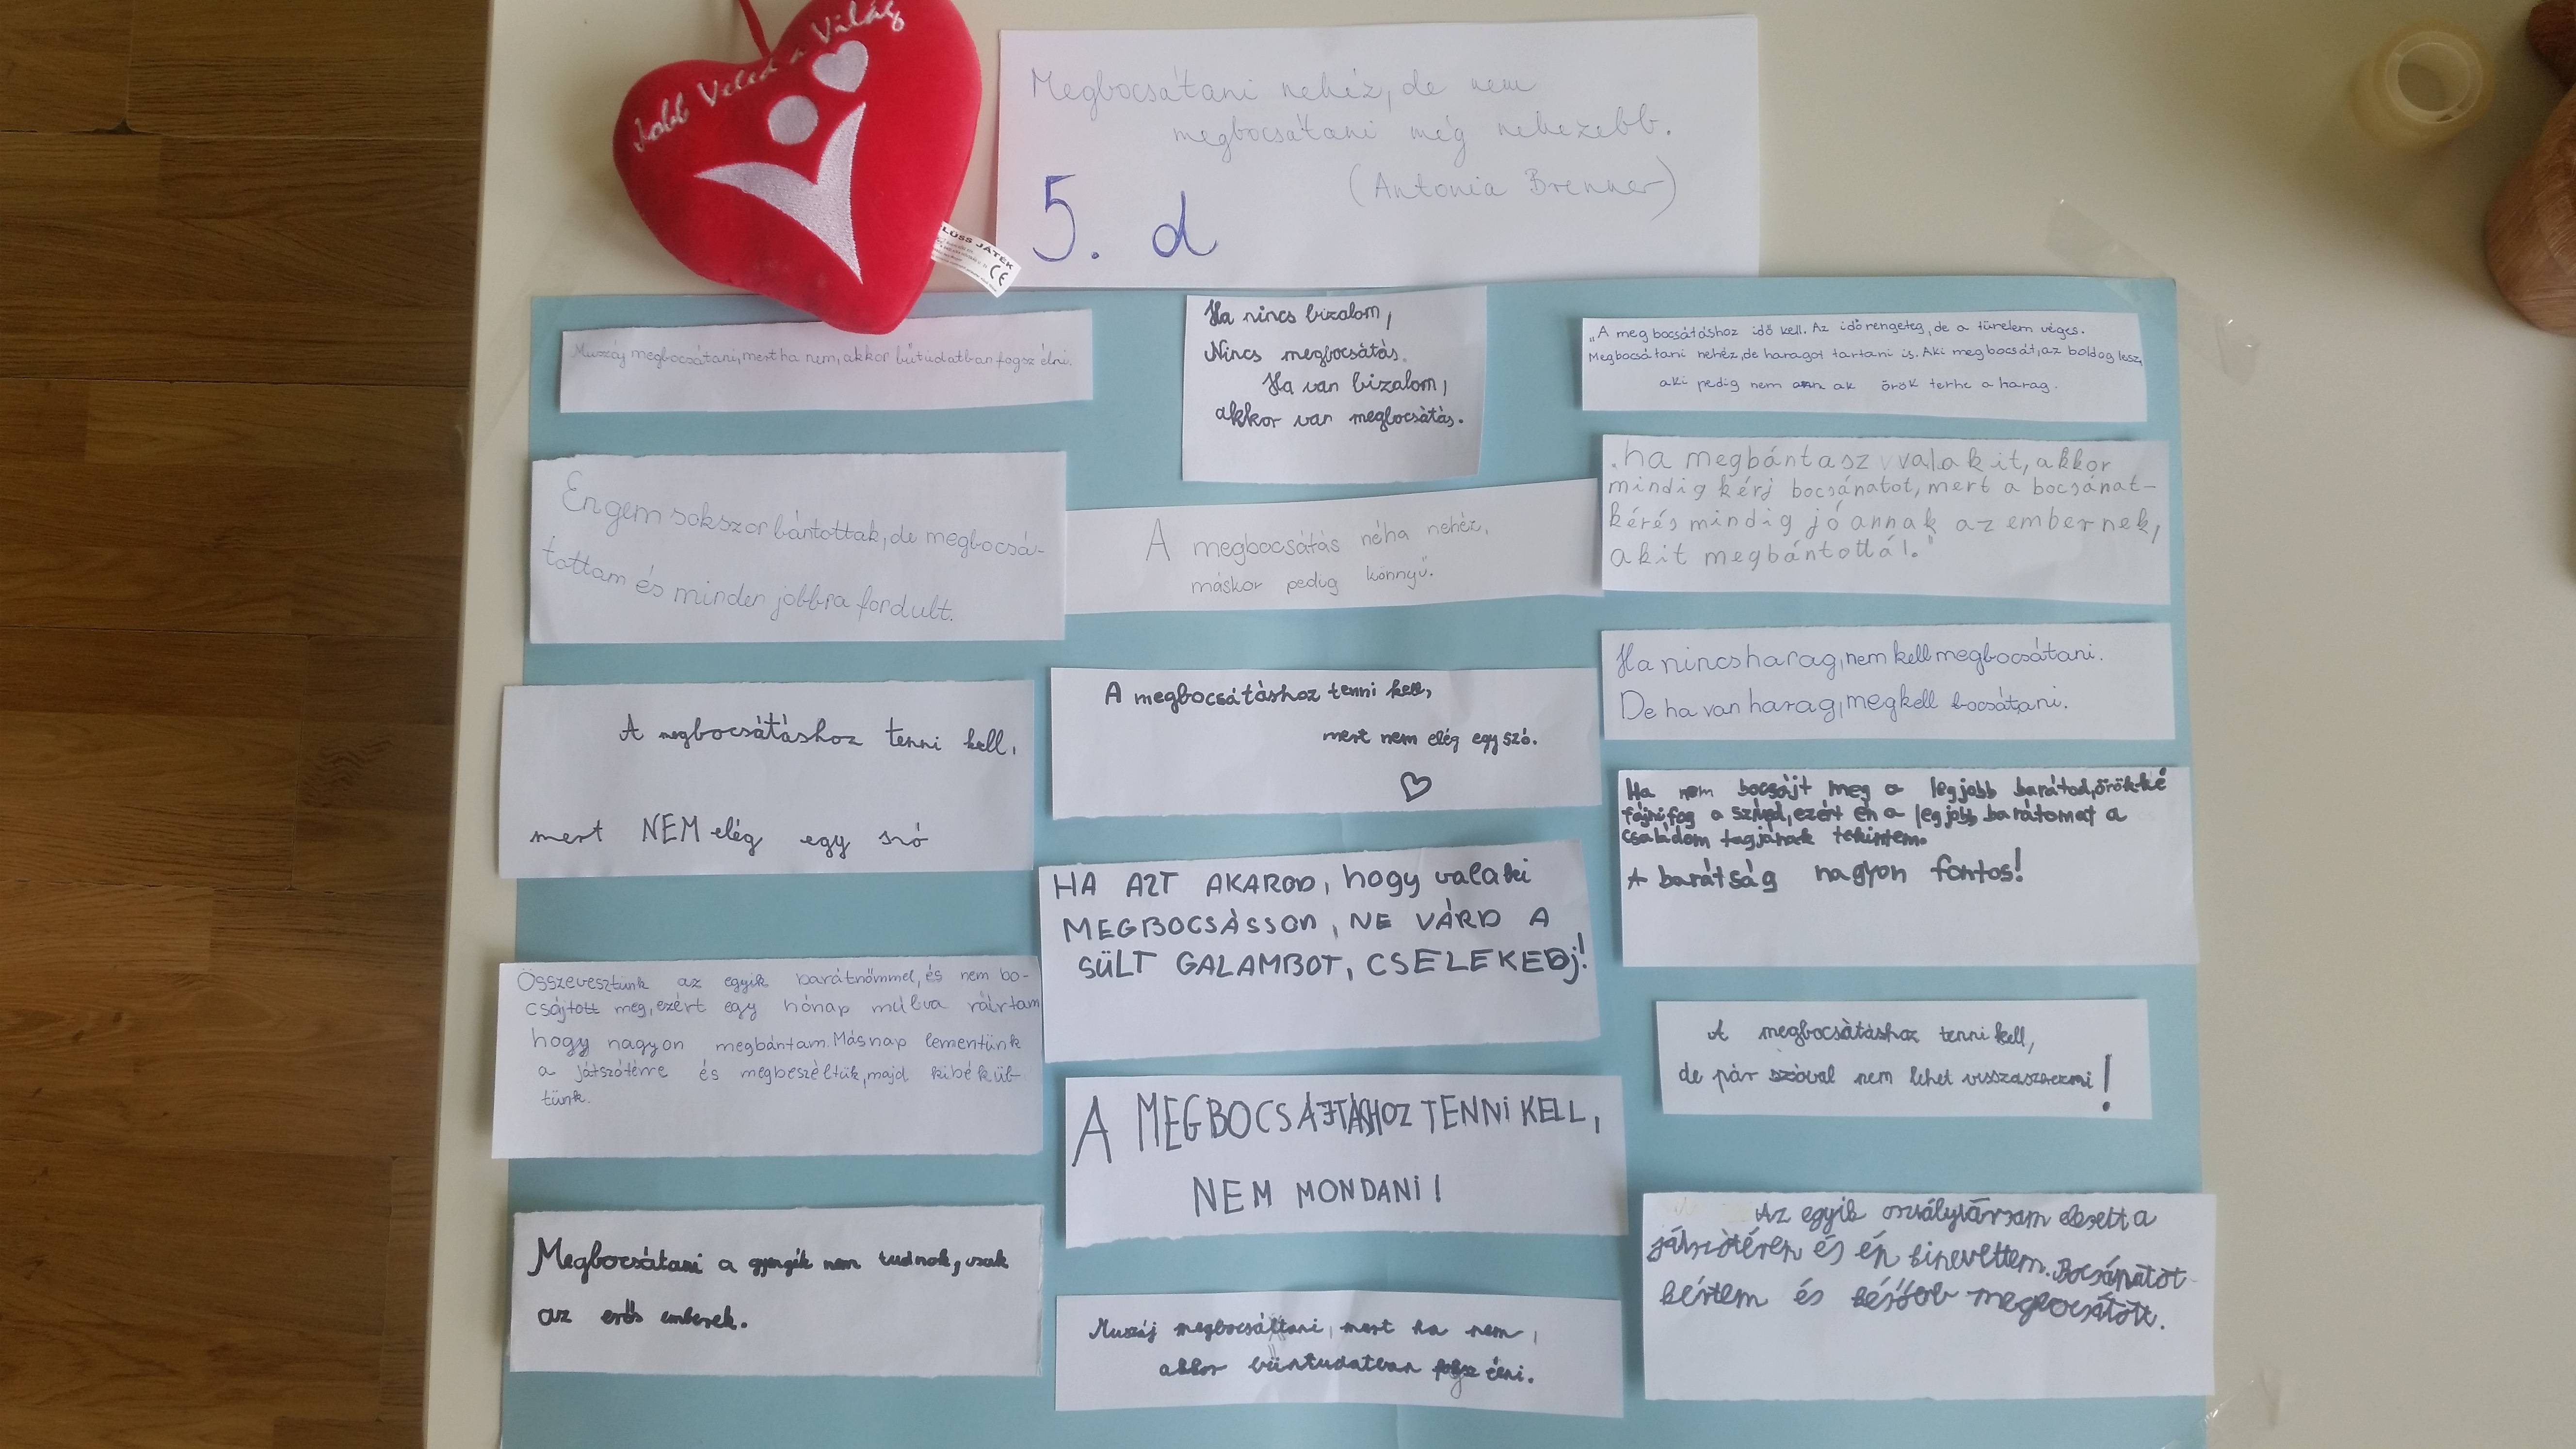 Jobb Veled a Világ
LÜSS JÁTÉK
CE
Megbocsátani nehéz, de nem
megbocsátani még nehezebb.
(Antonia Brenner)
5. d
Muszáj megbocsátani, mert ha nem, akkor bűtudatban fogsz élni.
Engem sokszor bántottak, de megbocsá-
tottam és minden jobbra fordult.
A megbocsátáshoz tenni kell,
mert NEM elég egy szó
Összevesztünk az egyik barátnőmmel, és nem bo-
csájtott meg, ezért egy hónap múlva ráírtam
hogy nagyon megbántam. Másnap lementünk
a játszótérre és megbeszéltük, majd kibékül-
tünk.
Megbocsátani a gyengék nem tudnak, csak
az erős emberek.
Ha nincs bizalom,
Nincs megbocsátás.
Ha van bizalom,
akkor van megbocsátás.
A megbocsátás néha nehéz,
máskor pedig könnyű.
A megbocsátáshoz tenni kell,
mert nem elég egy szó.
HA AZT AKAROD, hogy valaki
MEGBOCSÁSSON, NE VÁRD A
SÜLT GALAMBOT, CSELEKEDj!
A MEGBOCSÁJTÁSHOZ TENNi KELL,
NEM MONDANi!
Muszáj megbocsátani, mert ha nem,
akkor bűntudatban fogsz élni.
„A megbocsátáshoz idő kell. Az idő rengeteg, de a türelem véges.
Megbocsátani nehéz, de haragot tartani is. Aki megbocsát, az boldog lesz,
aki pedig nem ak örök terhe a harag.
„ha megbántasz valakit, akkor
mindig kérj bocsánatot, mert a bocsánat-
kérés mindig jó annak az embernek,
akit megbántottál."
Ha nincs harag, nem kell megbocsátani.
De ha van harag, meg kell bocsátani.
Ha nem bocsájt meg a legjobb barátod, örökké
fájni fog a szíved, ezért én a legjobb barátomat a
családom tagjának tekintem.
A barátság nagyon fontos!
A megbocsátáshoz tenni kell,
de pár szóval nem lehet visszaszerezni!
Az egyik osztálytársam elesett a
játszótéren és én kinevettem. Bocsánatot
kértem és később megbocsátott.